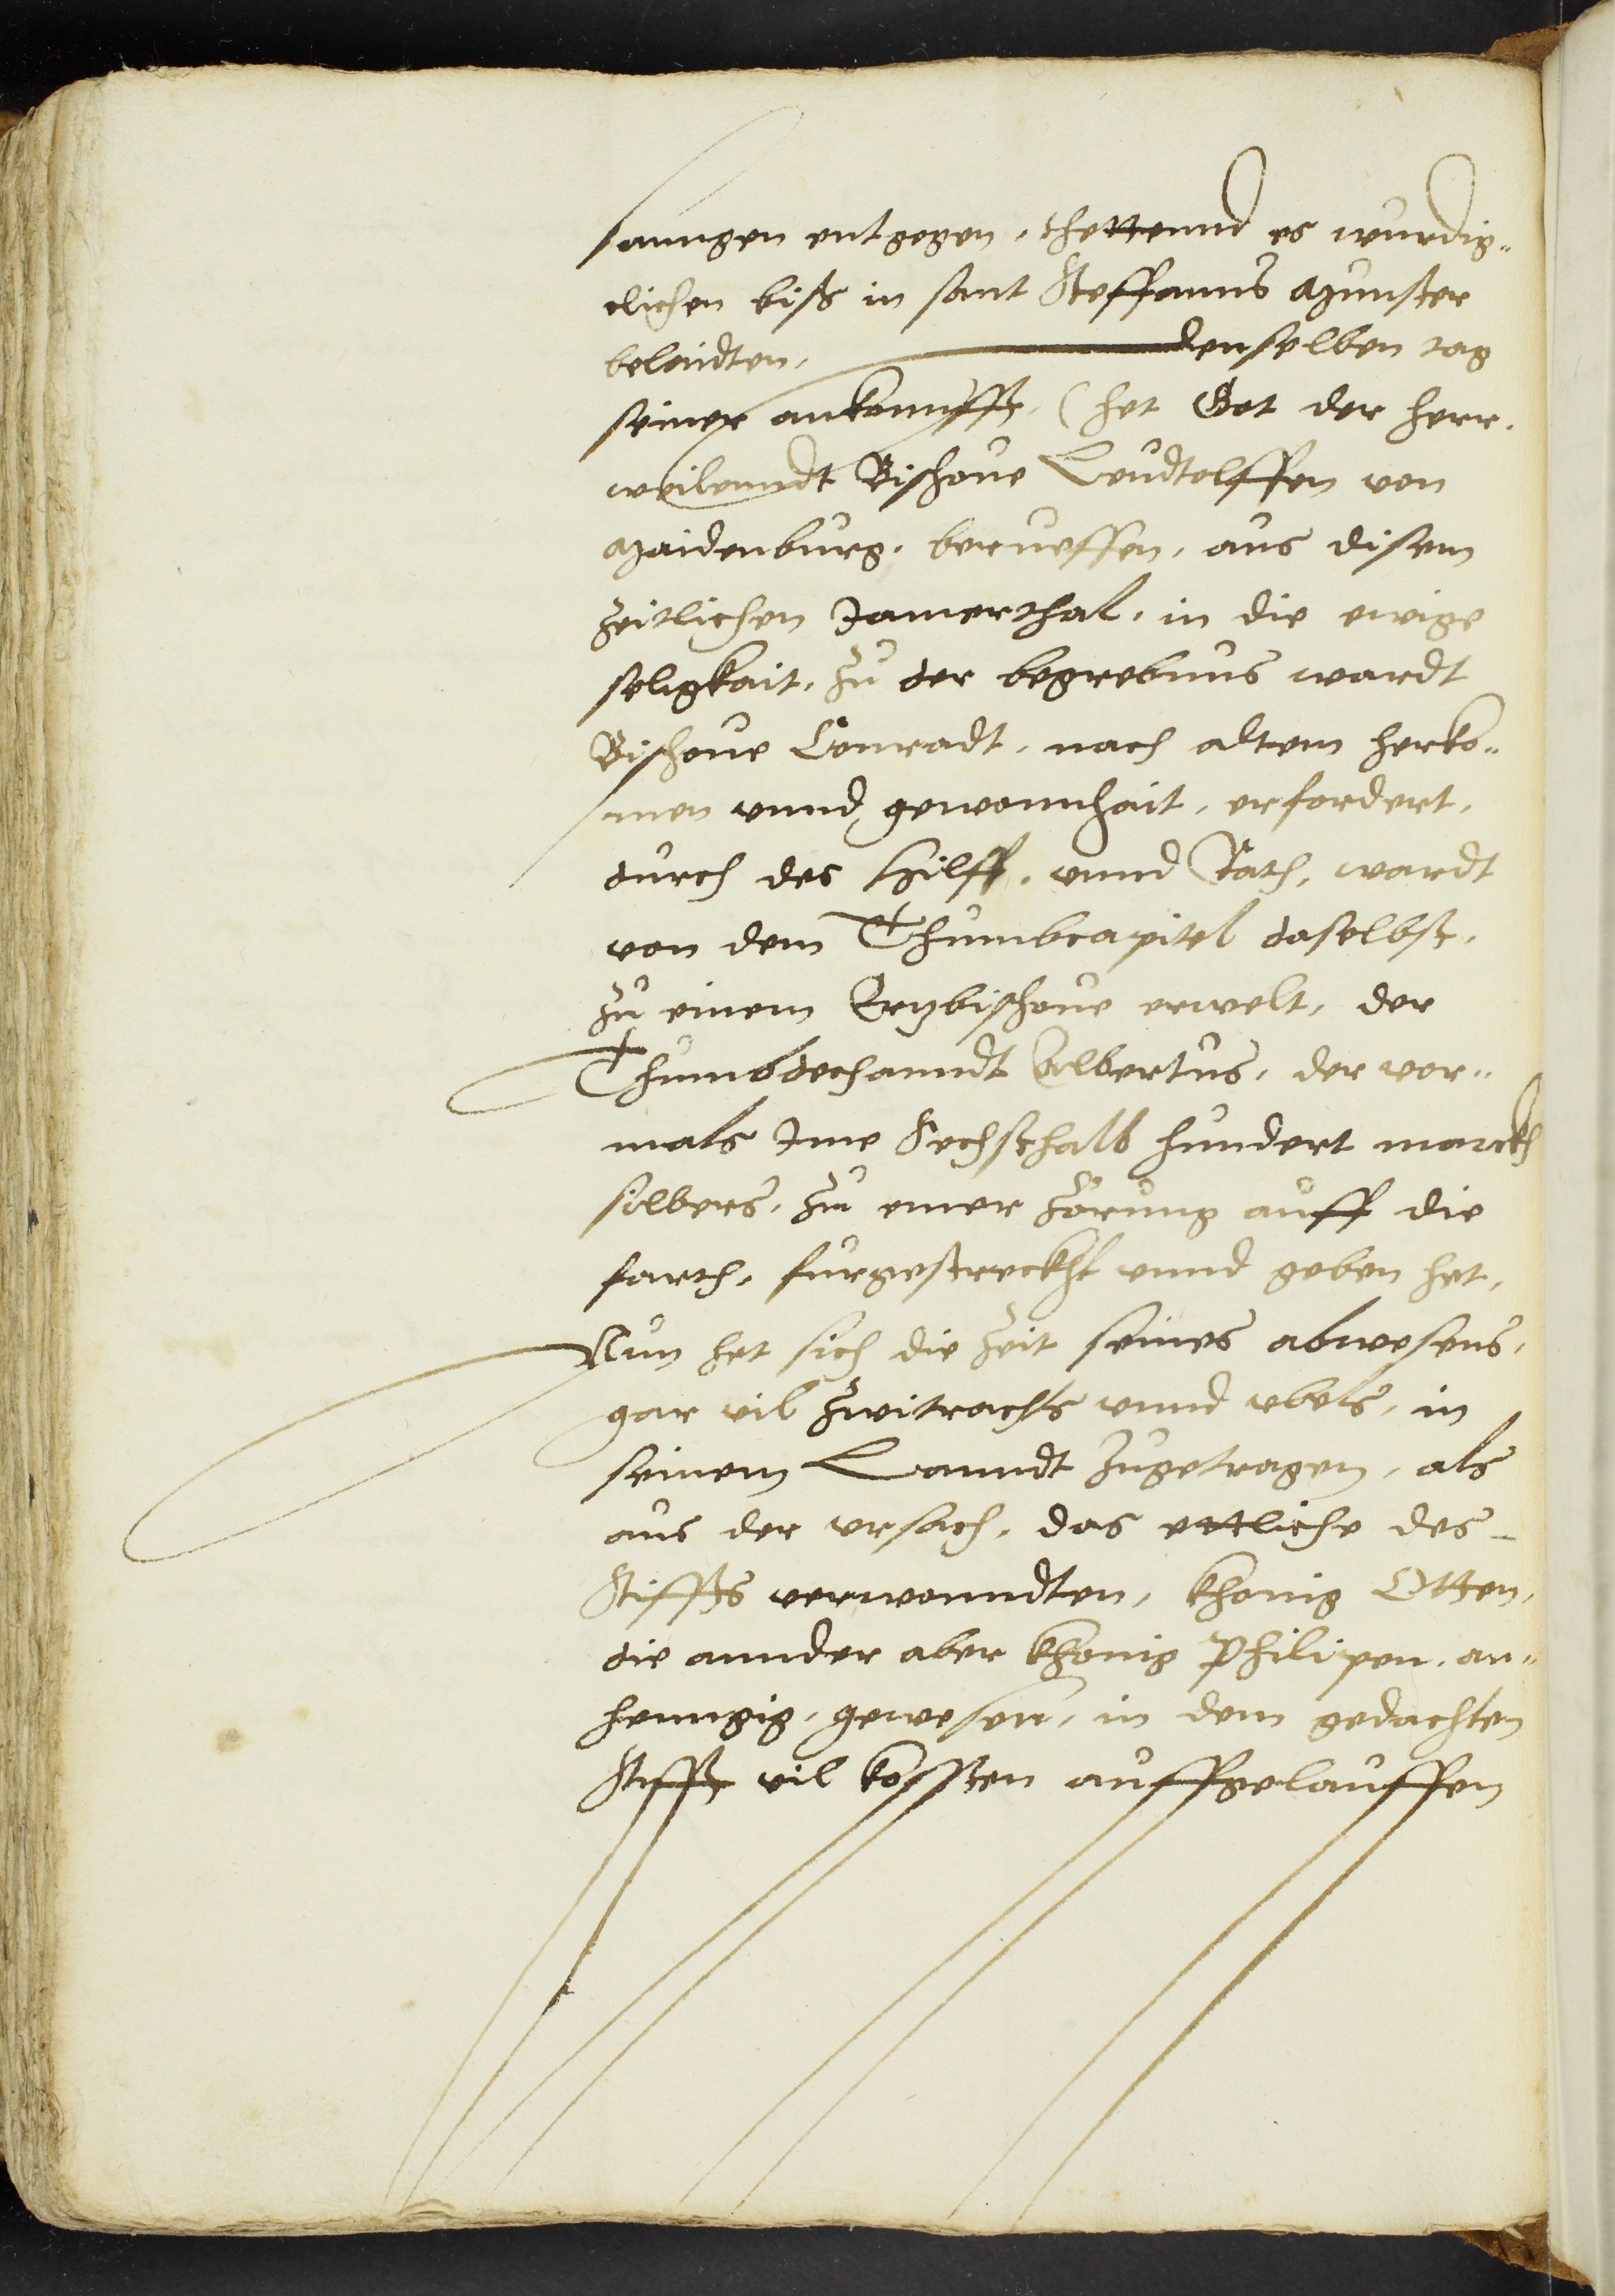 sanngen entgegen, thettennd es wurdig-
clichen biß in sant Steffanns Munster
belaidten, denselben tag
seiner ankonnfft, (het Got der herr,
weilenndt Bischove Leudtolffen von
Maidenburg, berueffen, aus disem
zeitlichen Jamerthal, in die ewige
seligkait, zu der begrebnus wardt
Bischove Conradt, nach altem herko-
men unnd gewonnhait, erfordert,
durch des Hilff, unnd Rath, wardt
von dem Thumbcapitel daselbst,
zu einem Ertzbischove erwelt, der
Thumbdechanndt Albertus, der vor-
mals Ime Sechsthalb hundert marckh
silbers, zu einer Zörung auff die
farth, furgestreckht unnd geben het,
Nun het sich die Zeit seines abwesens,
gar vil Zwitrachts unnd ubels, in
seinem Lanndt Zugetragen, als
aus der ursach, das ettliche des
Stiffts verwonndten, khonig Otten,
die annder aber khonig Philipen, an-
henngig, gewesen, in dem gedachten
Stifft vil kossten auffgelauffen